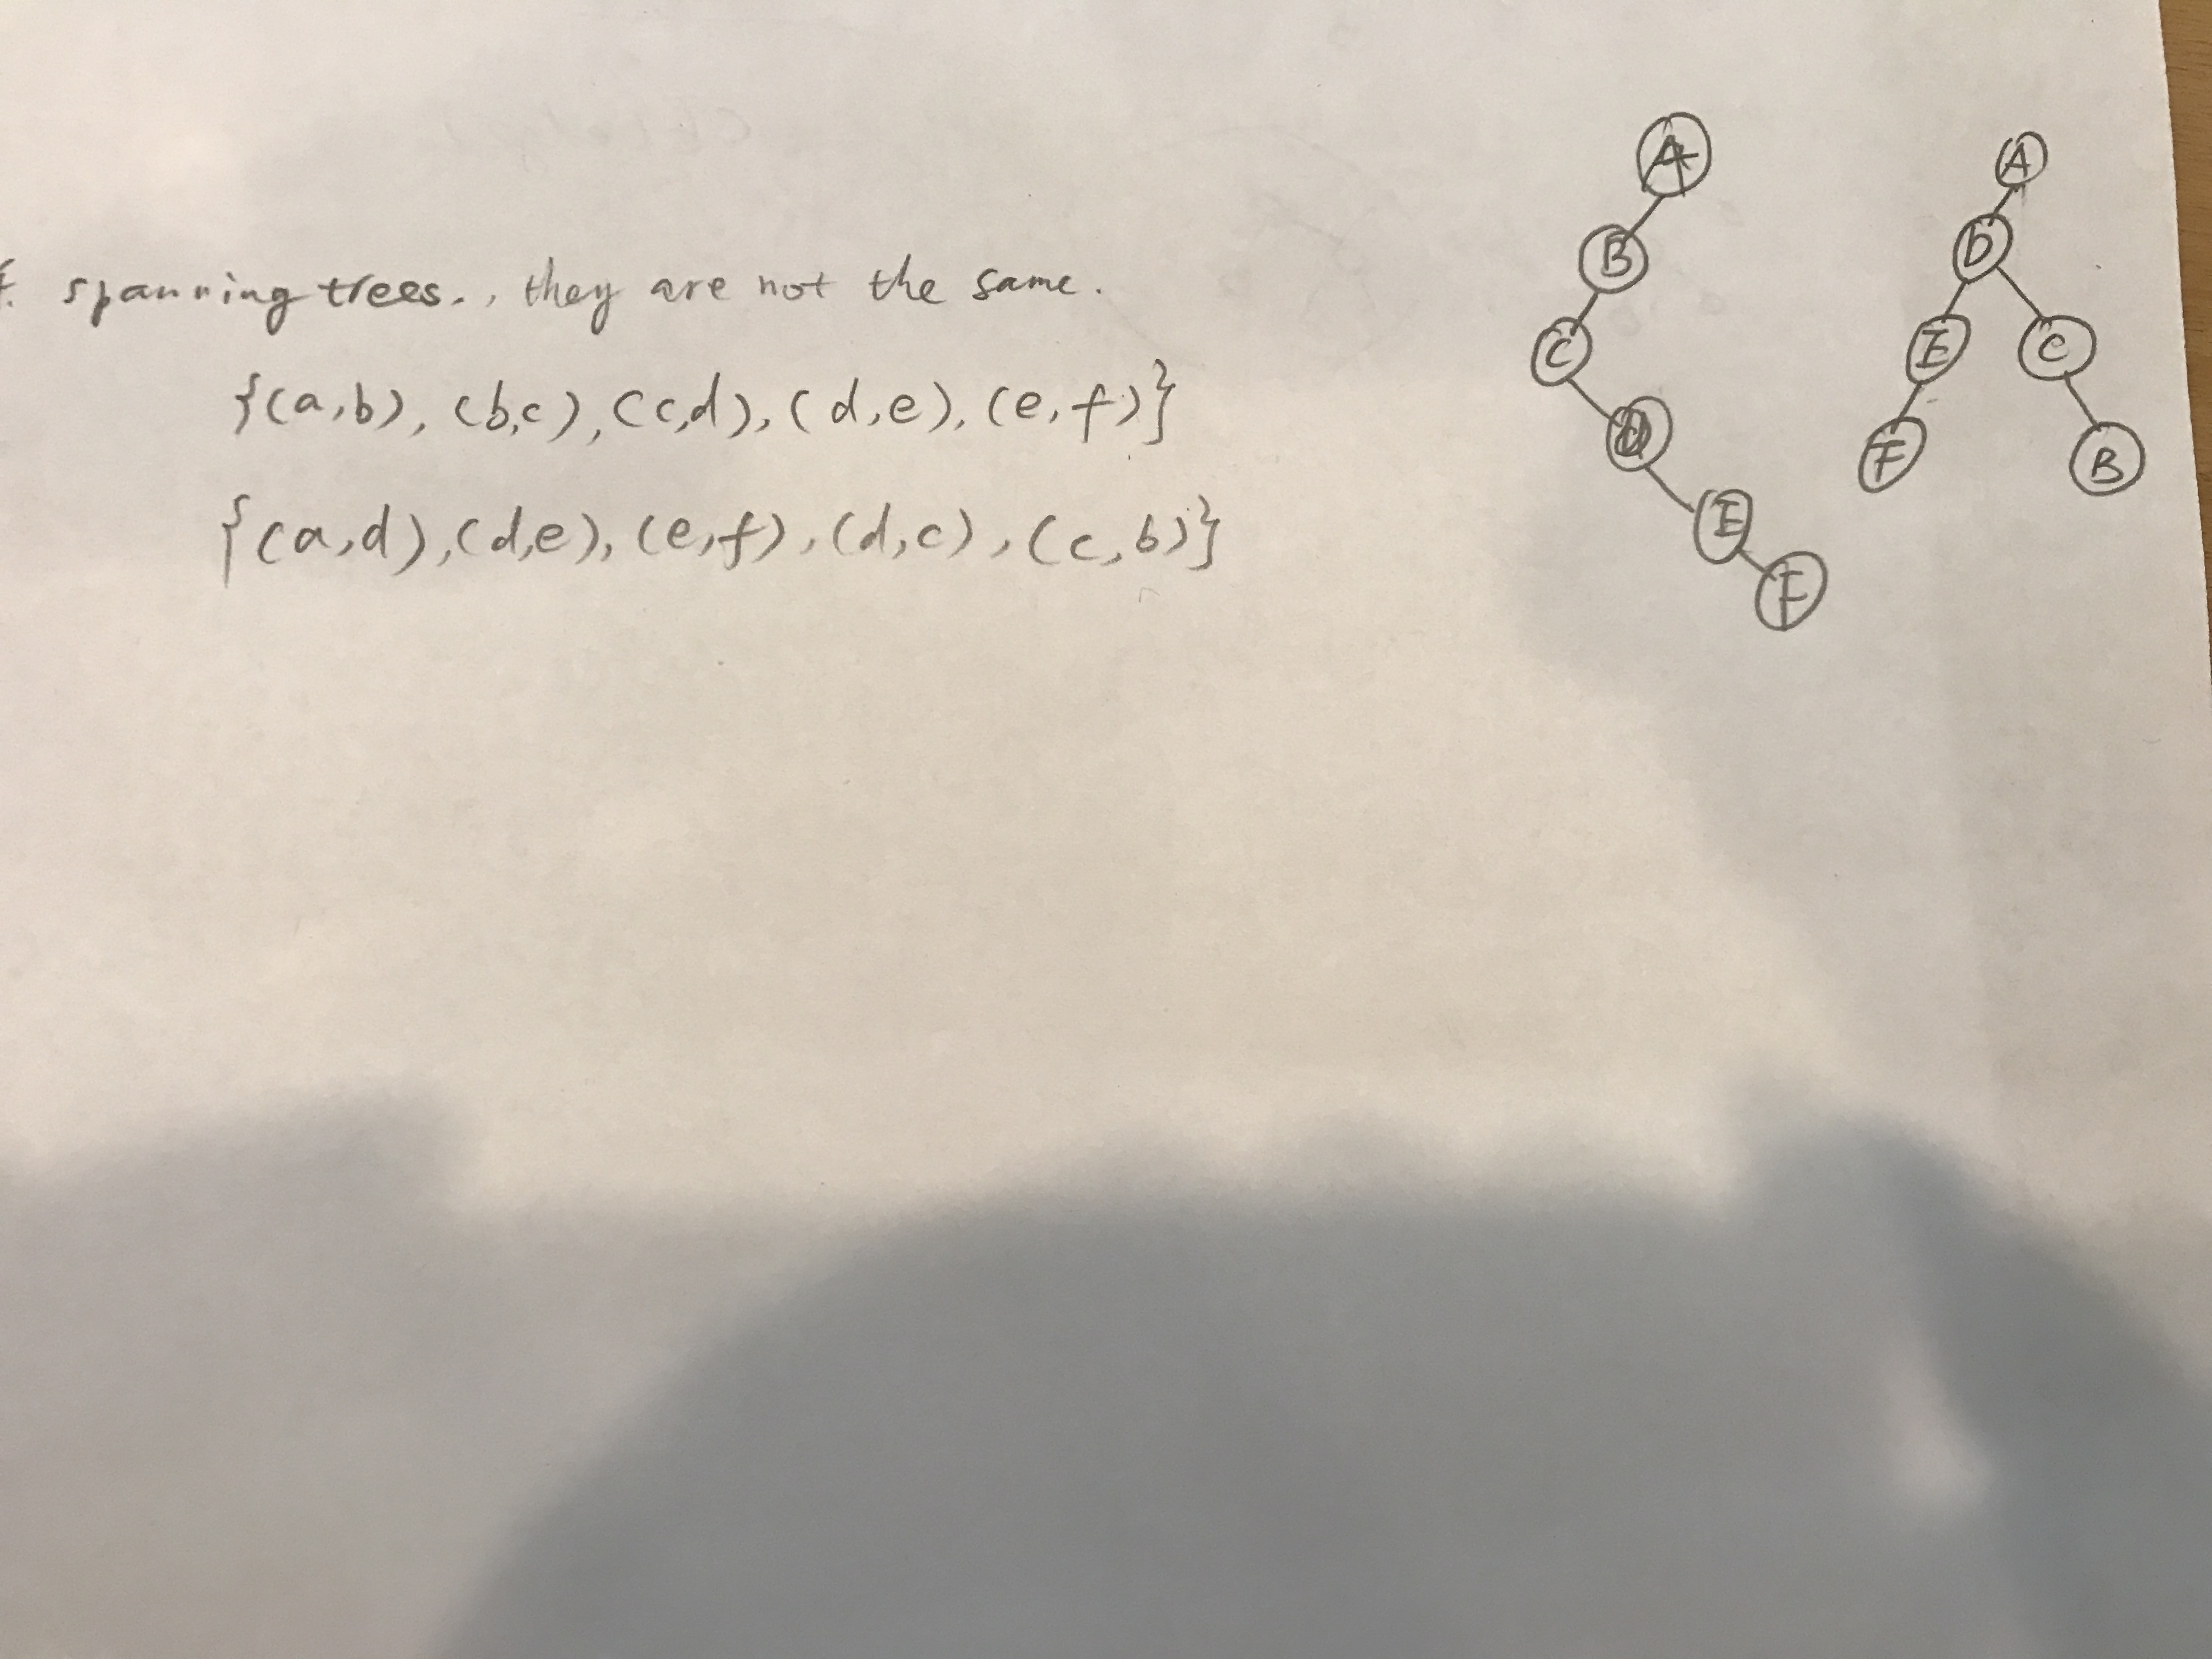 f. spanning trees., they are not the same.
{(a,b), (b,c), (c,d), (d,e), (e,f)}
{(a,d), (d,e), (e,f), (d,c), (c,b)}
A
B
C
D
E
F
A
D
E
C
F
B